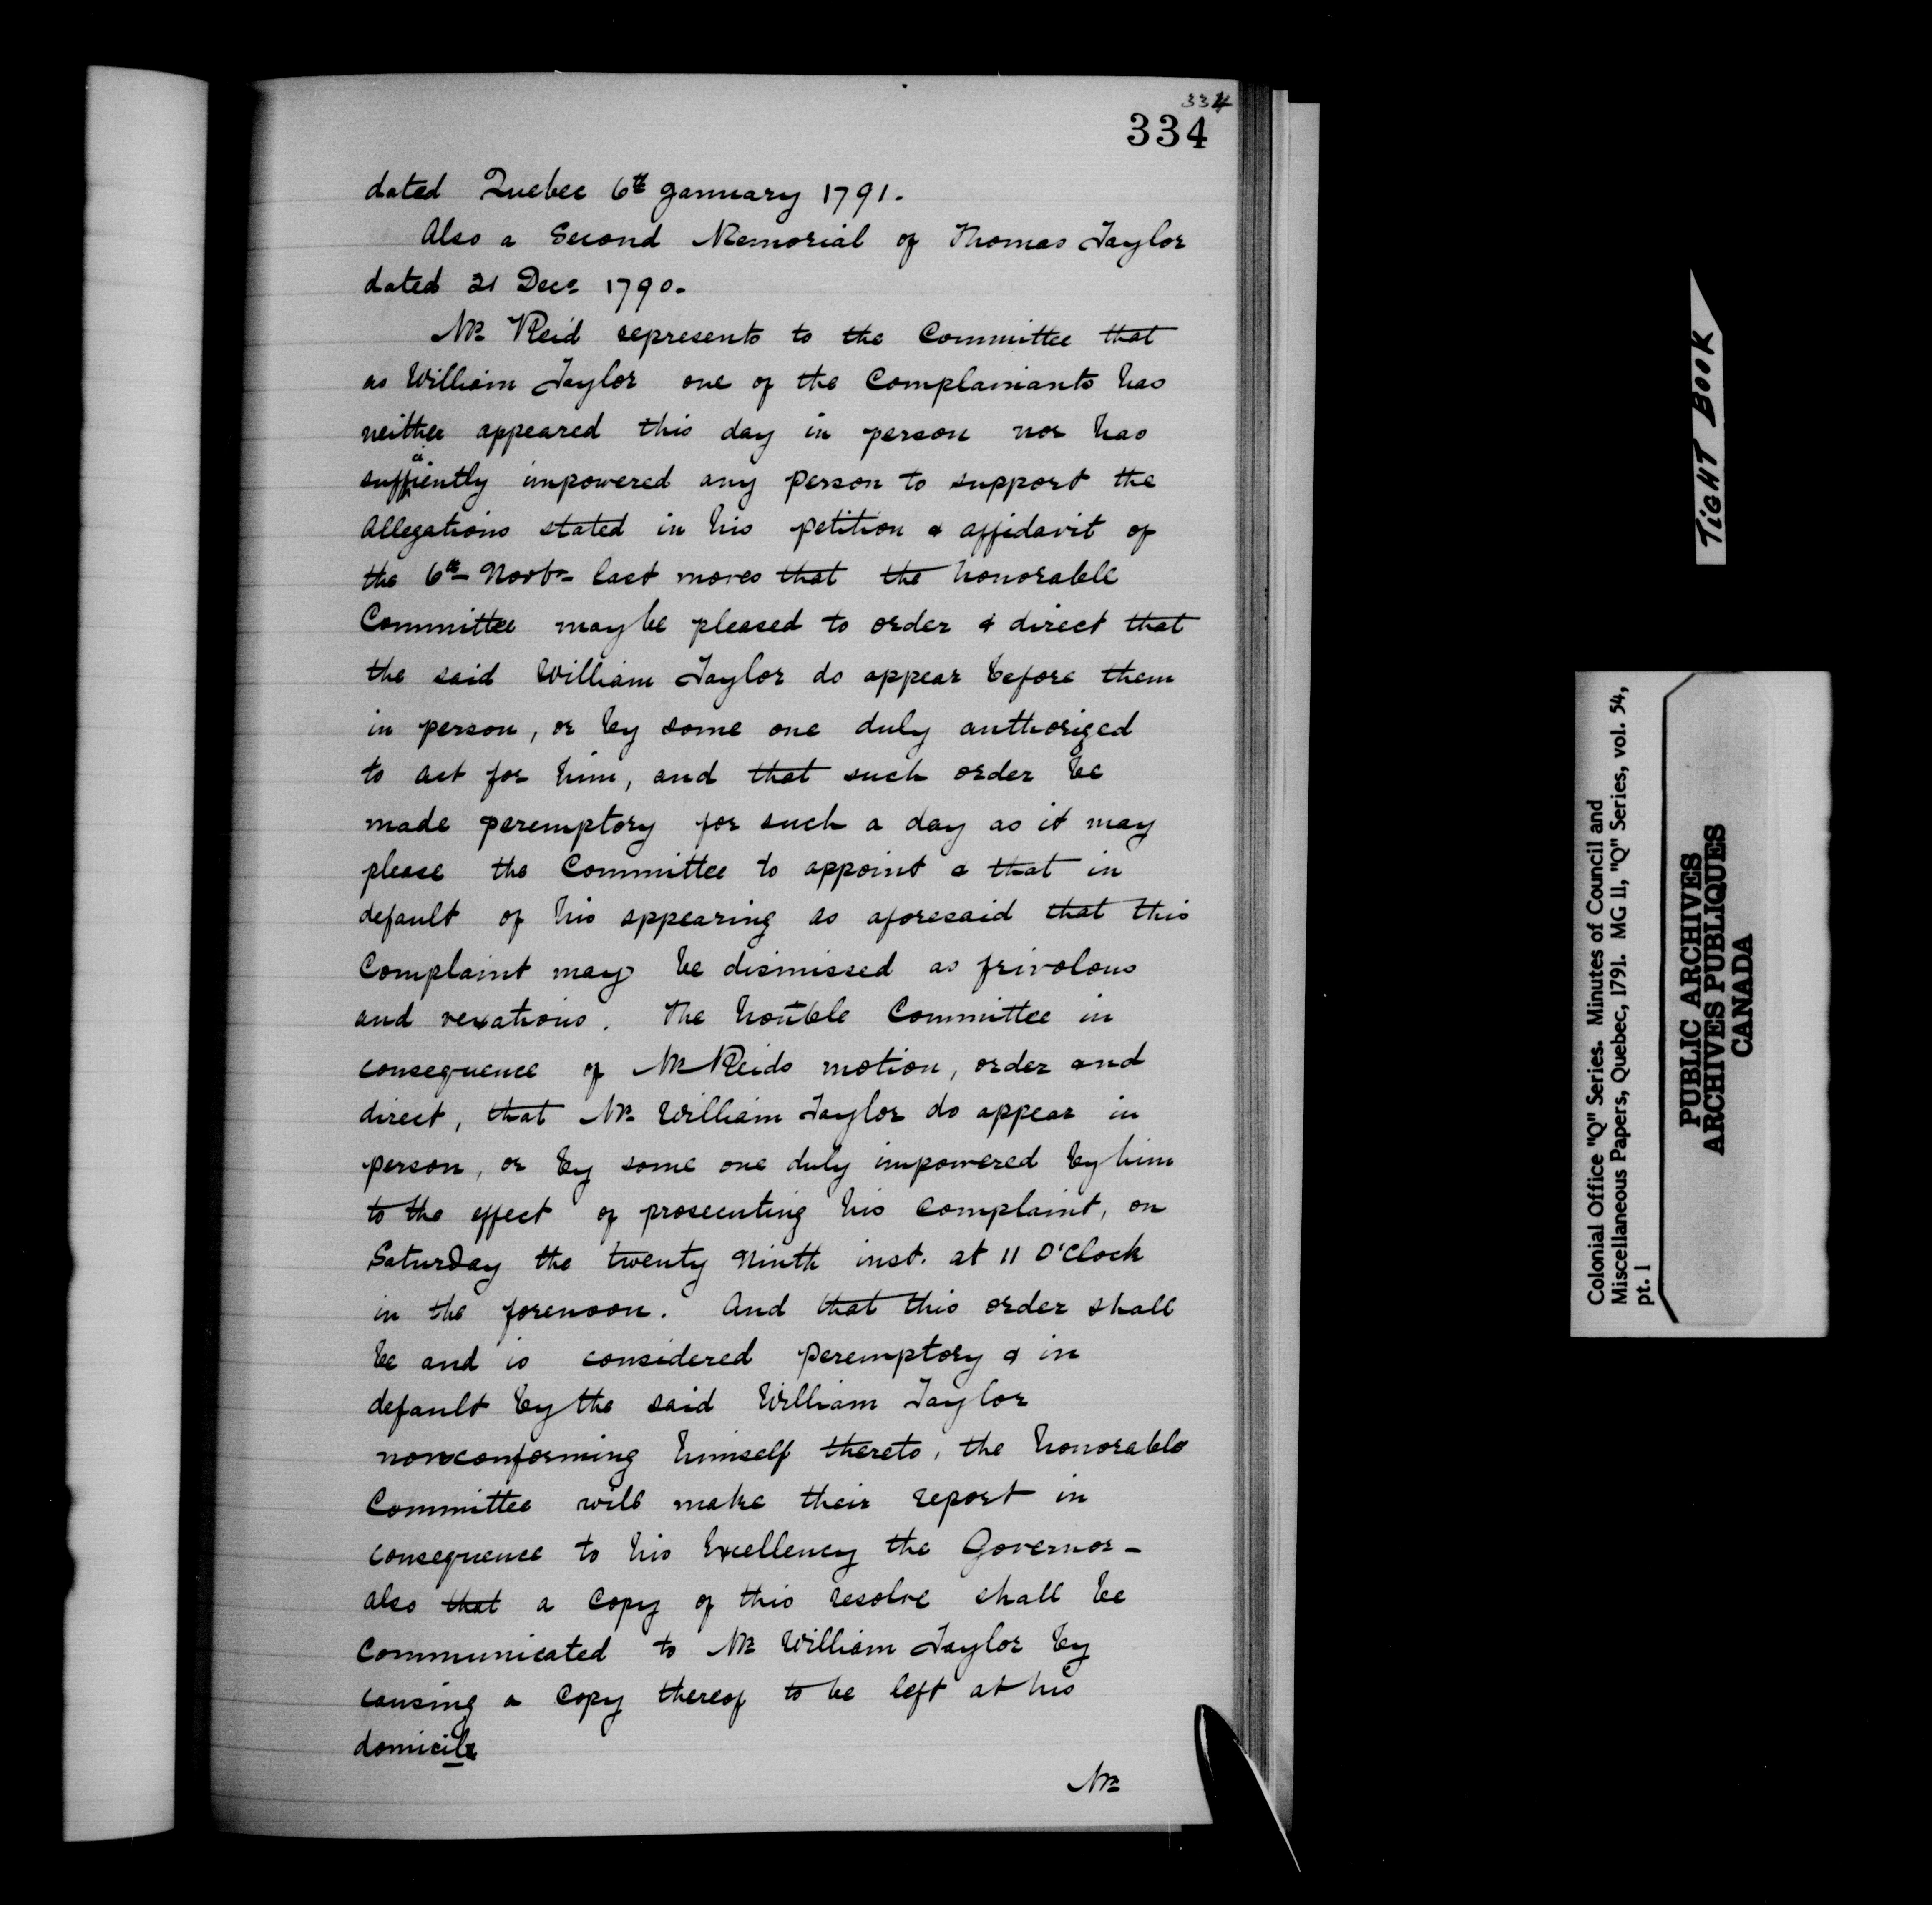 334
334
dated Quebec 6th January 1791.
Also a Second Memorial of Thomas Taylor
dated 21 Decr 1790.
Mr Reid represents to the Committee that
as William Taylor one of the Complainants has
neither appeared this day in person nor has
sufficiently impowered any person to support the
Allegations stated in his petition & affidavit of
the 6th Novbr last moves that the honorable
Committee may be pleased to order & direct that
the said William Taylor do appear before them
in person, or by some one duly authorized
to act for him, and that such order be
made peremptory for such a day as it may
please the Committee to appoint & that in
default of his appearing as aforesaid that this
Complaint may be dismissed as frivolous
and vexatious. The honble Committee in
consequence of Mr Reids motion, order and
direct, that Mr William Taylor do appear in
person, or by some one duly impowered by him
to the effect of prosecuting his complaint, on
Saturday the twenty ninth inst. at 11 O'Clock
in the forenoon. And that this order shall
be and is considered peremptory & in
default by the said William Taylor
nonconforming himself thereto, the honorable
Committee will make their report in
consequence to his Excellency the Governor -
also that a copy of this resolve shall be
communicated to Mr William Taylor by
causing a copy thereof to be left at his
domicile
Mr
TIGHT BOOK
Colonial Office "Q" Series. Minutes of Council and
Miscellaneous Papers, Quebec, 1791. MG 11, "Q" Series, vol. 54,
pt. 1
PUBLIC ARCHIVES
ARCHIVES PUBLIQUES
CANADA